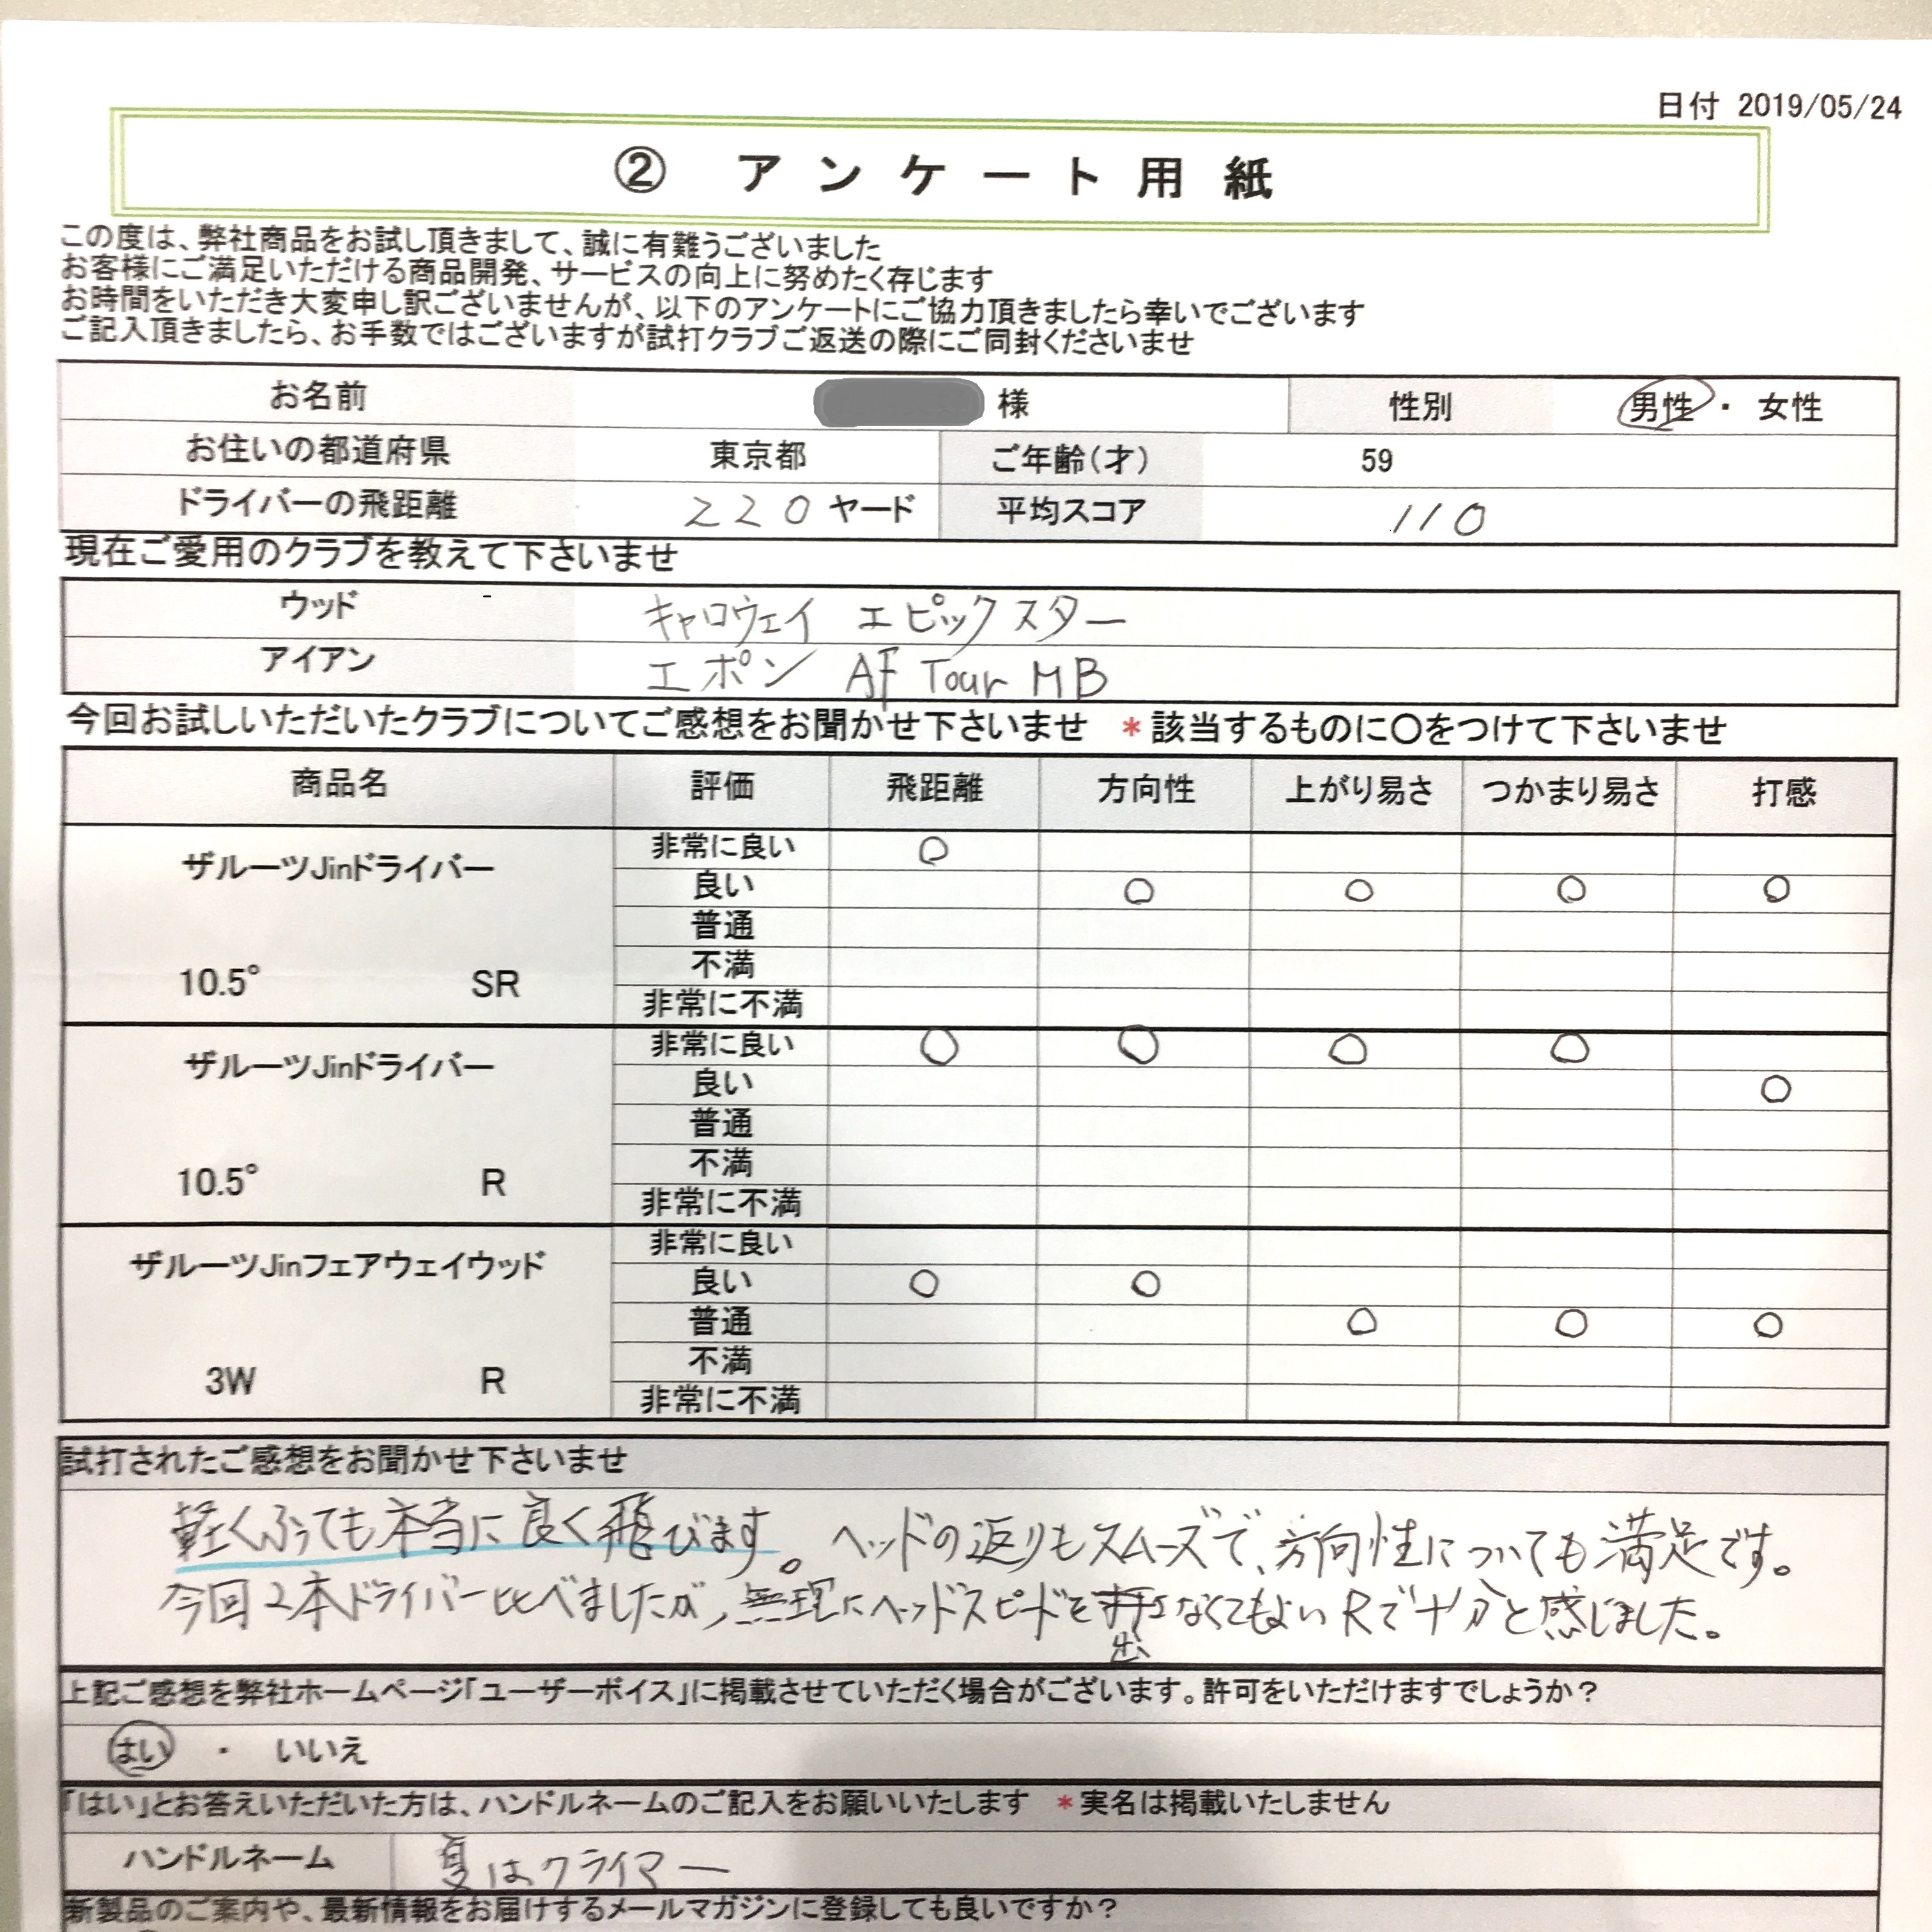 日付 2019/05/24
② アンケート用紙
この度は、弊社商品をお試し頂きまして、誠に有難うございました
お客様にご満足いただける商品開発、サービスの向上に努めたく存じます
お時間をいただき大変申し訳ございませんが、以下のアンケートにご協力頂きましたら幸いでございます
ご記入頂きましたら、お手数ではございますが試打クラブご返送の際にご同封くださいませ
お名前 様 性別 男性 ・ 女性
お住いの都道府県 東京都 ご年齢(才) 59
ドライバーの飛距離 220 ヤード 平均スコア 110
現在ご愛用のクラブを教えて下さいませ
ウッド - キャロウェイ エピックスター
アイアン エポン AF Tour MB
今回お試しいただいたクラブについてご感想をお聞かせ下さいませ *該当するものに〇をつけて下さいませ
商品名 評価 飛距離 方向性 上がり易さ つかまり易さ 打感
ザルーツJinドライバー
10.5° SR
非常に良い ○
良い ○ ○ ○ ○
普通
不満
非常に不満
ザルーツJinドライバー
10.5° R
非常に良い ○ ○ ○ ○
良い ○
普通
不満
非常に不満
ザルーツJinフェアウェイウッド
3W R
非常に良い
良い ○ ○
普通 ○ ○ ○
不満
非常に不満
試打されたご感想をお聞かせ下さいませ
軽くふっても本当に良く飛びます。ヘッドの返りもスムーズで、方向性についても満足です。
今回2本ドライバー比べましたが、無理にヘッドスピードを出さなくてもよいRで十分と感じました。
上記ご感想を弊社ホームページ「ユーザーボイス」に掲載させていただく場合がございます。許可をいただけますでしょうか?
はい ・ いいえ
「はい」とお答えいただいた方は、ハンドルネームのご記入をお願いいたします *実名は掲載いたしません
ハンドルネーム 夏はクライマー
新製品のご案内や、最新情報をお届けするメールマガジンに登録しても良いですか?